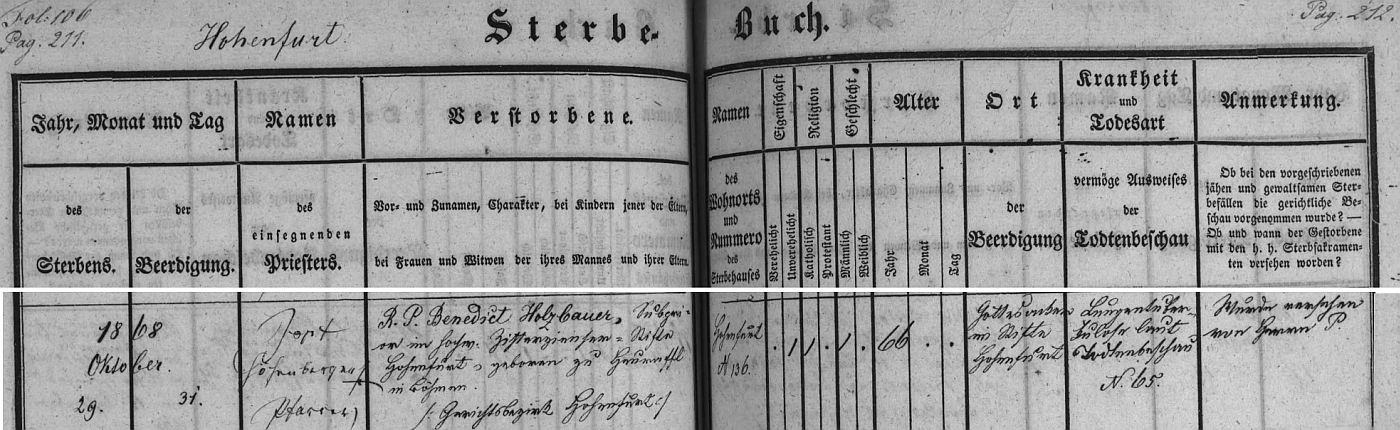 Fol. 106
Pag. 211.
Hohenfurt
Sterbe-Buch.
Pag. 212.
Jahr, Monat und Tag
des
Sterbens.
der
Beerdigung.
Namen
des
einsegnenden
Priesters.
Verstorbene.
Vor- und Zunamen, Charakter, bei Kindern jener der Eltern,
bei Frauen und Witwen der ihres Mannes und ihrer Eltern.
Namen
des
Wohnorts
und
Nummero
des
Sterbehauses
Eigenschaft
Verehelicht
Unverehelicht
Religion
Katholisch
Protestant
Geschlecht
Männlich
Weiblich
Alter
Jahr
Monat
Tag
Ort
der
Beerdigung
Krankheit
und
Todesart
vermöge Ausweises
der
Todtenbeschau
Anmerkung.
Ob bei den vorgeschriebenen
jähen und gewaltsamen Ster-
befällen die gerichtliche Be-
schau vorgenommen wurde? —
Ob und wann der Gestorbene
mit den h. h. Sterbsakramen-
ten versehen worden?
1868
Oktober.
29.
31.
Pfarrer
R. P. Benedict Holzbauer, Subpri-
or im hochw. Zisterzienser-Stifte
Hohenfurt, geboren zu Heuraffl
in Böhmen.
/: Gerichtsbezirk Hohenfurt :/
Hohenfurt
N 136.
. 1 1 . 1 . 66 . .
Gottesacker
im Stifte
Hohenfurt
Lungentuber-
kulose laut
Todtenbeschau
N. 65.
Wurde versehen
von Herrn P.